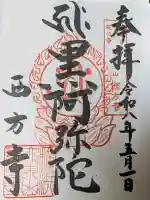 奉拝
令和八年五月一日
黒阿弥陀
西方寺